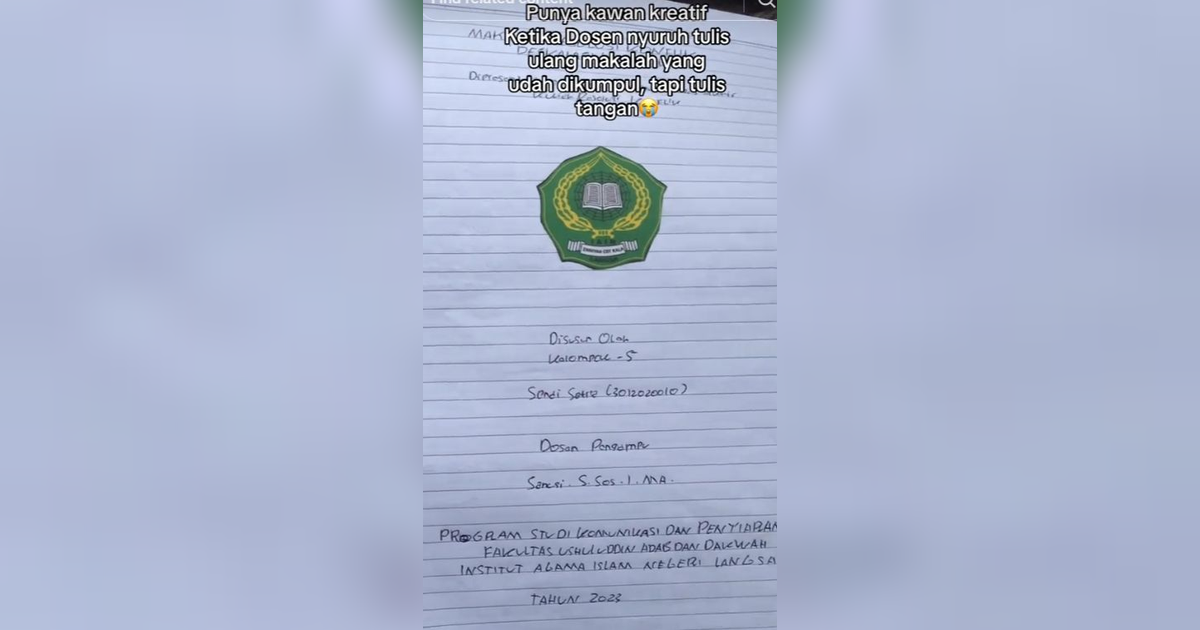 Find related content
Punya kawan kreatif
Ketika Dosen nyuruh tulis
ulang makalah yang
udah dikumpul, tapi tulis
tangan😭
Disusun Oleh
Kelompok - 5
Sendi Satria (3012020010)
Dosen Pengampu
Sanusi. S.Sos.I.MA.
PROGRAM STUDI KOMUNIKASI DAN PENYIARAN
FAKULTAS USHULUDDIN ADAB DAN DAKWAH
INSTITUT AGAMA ISLAM NEGERI LANGSA
TAHUN 2023